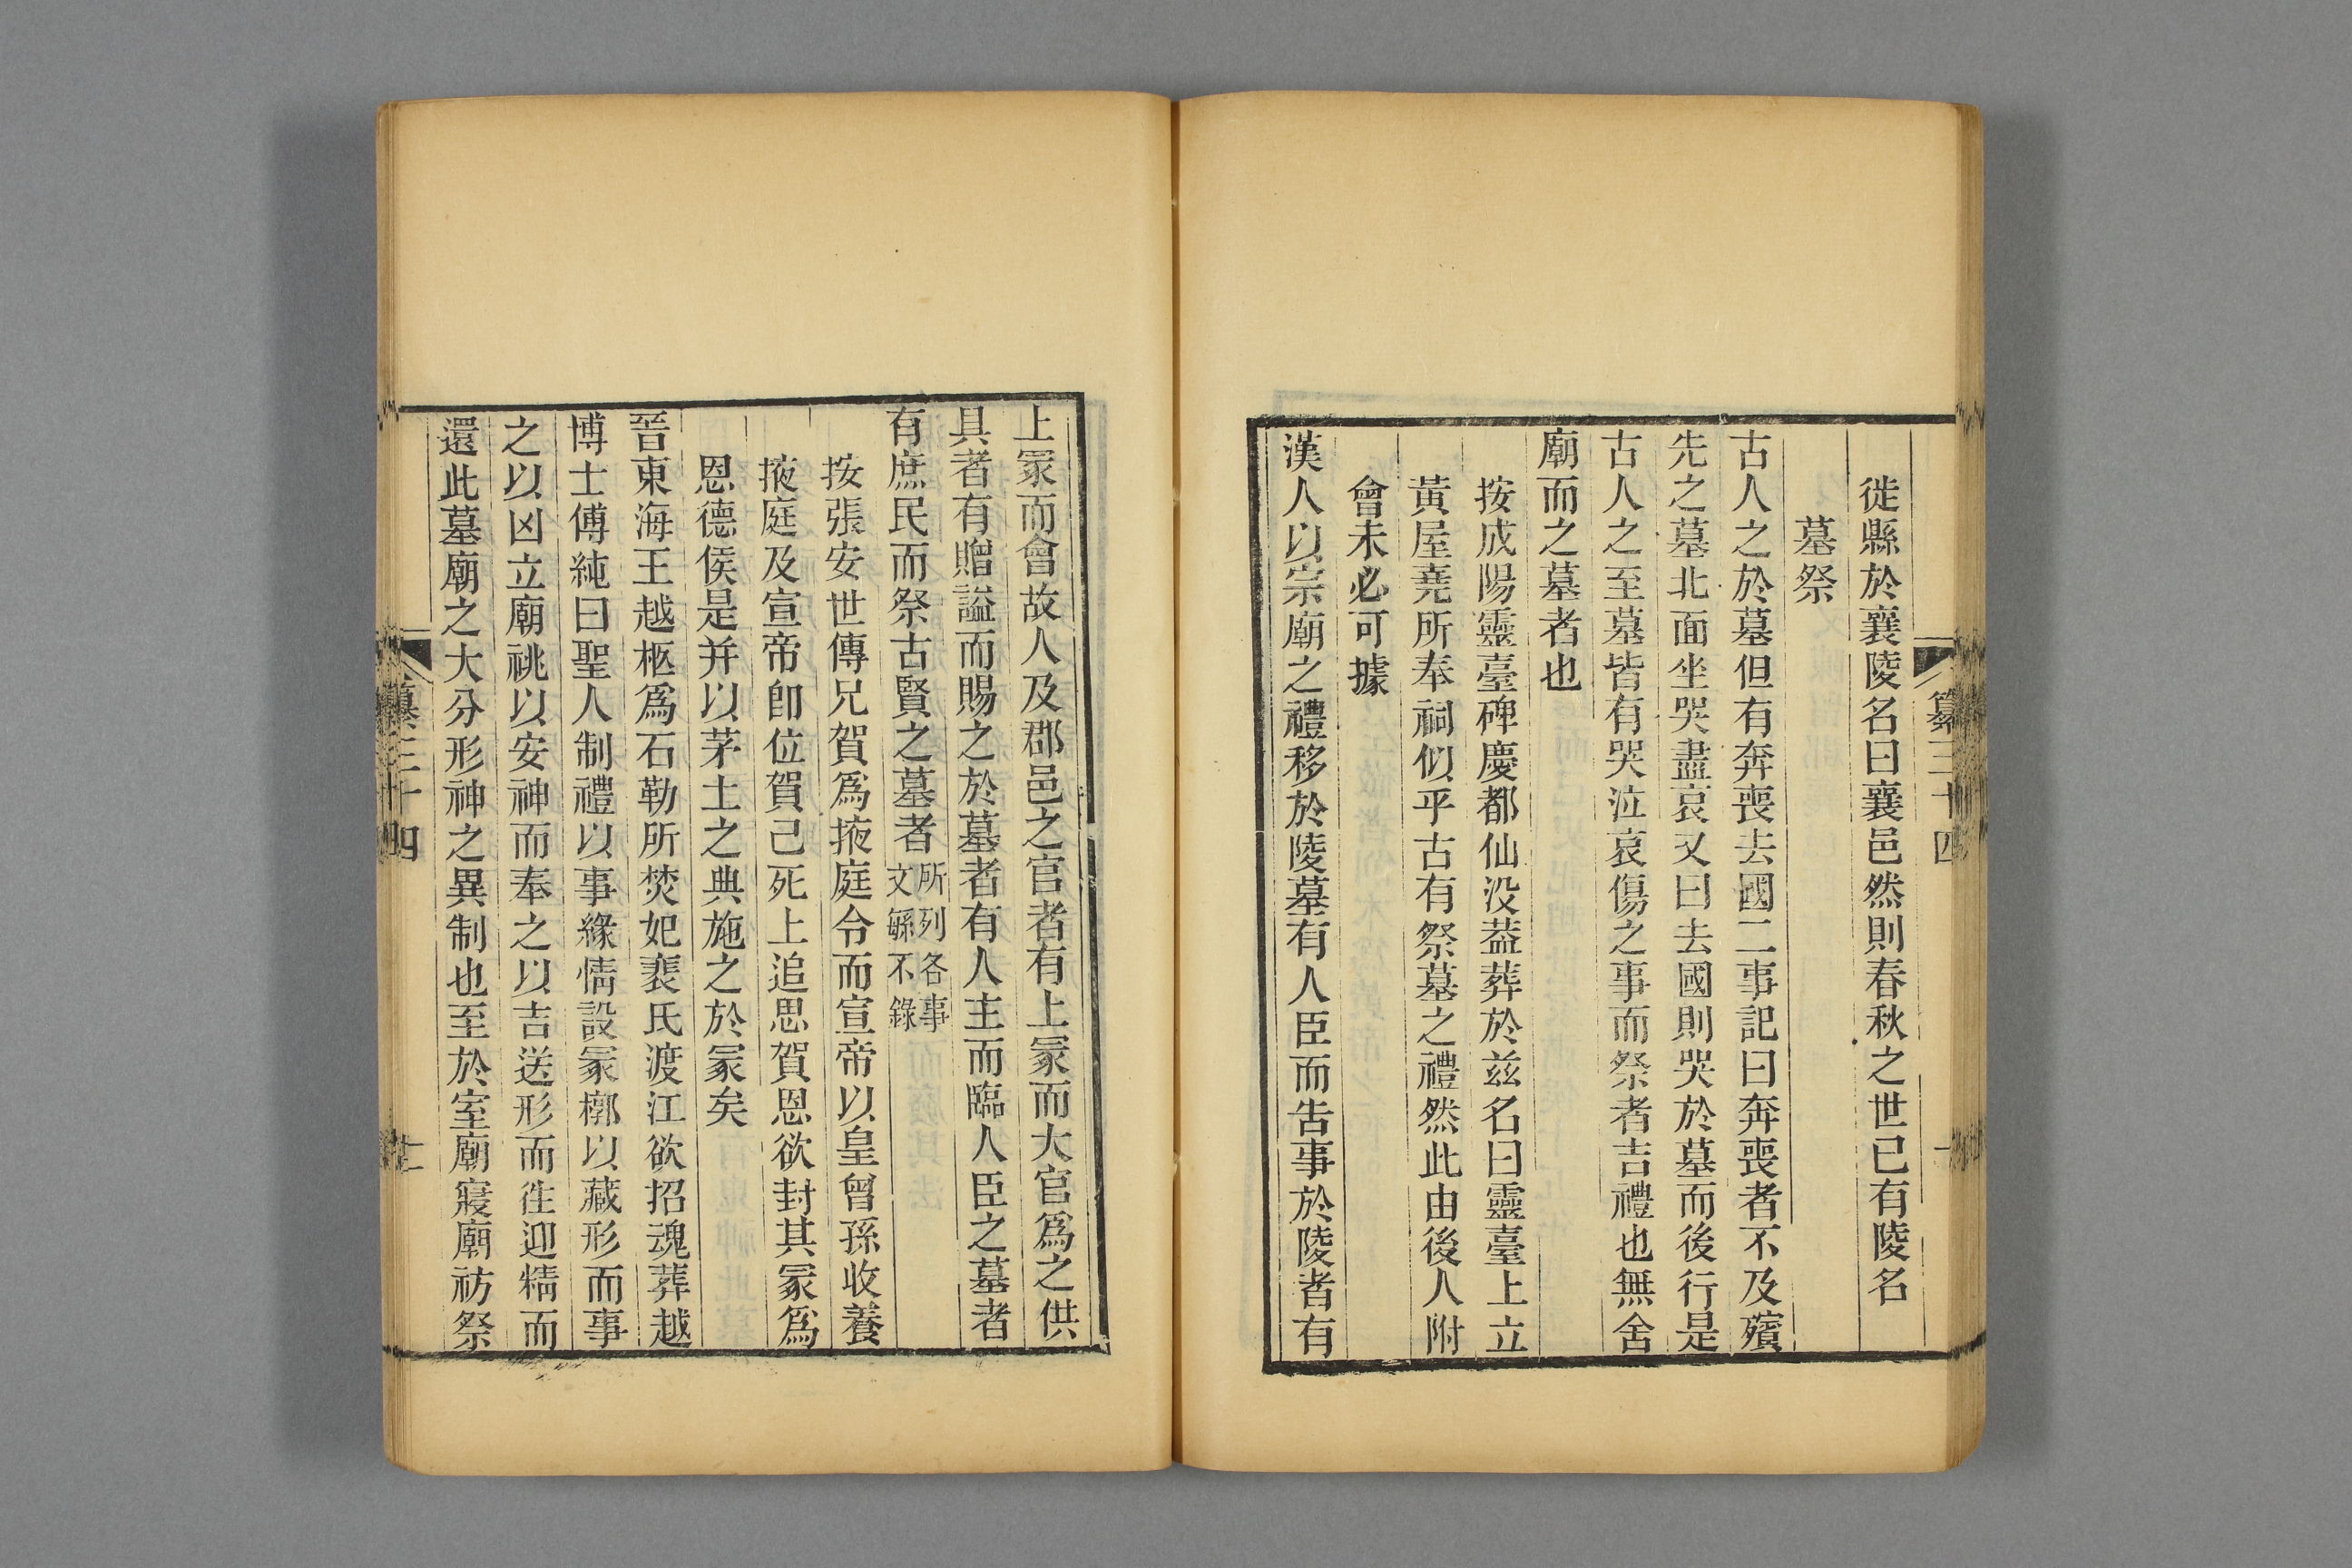 徙縣於襄陵名曰襄邑然則春秋之世已有陵名
墓祭
古人之於墓但有奔喪去國二事記曰奔喪者不及殯
先之墓北面坐哭盡哀又曰去國則哭於墓而後行是
古人之至墓皆有哭泣哀傷之事而祭者吉禮也無舍
廟而之墓者也
按成陽靈臺碑慶都仙没葢葬於兹名曰靈臺上立
黃屋堯所奉祠似乎古有祭墓之禮然此由後人附
會未必可據
漢人以宗廟之禮移於陵墓有人臣而告事於陵者有
纂三十四
上冢而會故人及郡邑之官者有上冢而大官爲之供
具者有贈謚而賜之於墓者有人主而臨人臣之墓者
有庶民而祭古賢之墓者所列各事文繇不錄
按張安世傳兄賀爲掖庭令而宣帝以皇曾孫收養
掖庭及宣帝卽位賀己死上追思賀恩欲封其冢爲
恩德侯是并以茅土之典施之於冢矣
晉東海王越柩爲石勒所焚妃裴氏渡江欲招魂葬越
博士傅純曰聖人制禮以事緣情設冢槨以藏形而事
之以凶立廟祧以安神而奉之以吉送形而徃迎精而
還此墓廟之大分形神之異制也至於室廟寢廟祊祭
纂三十四